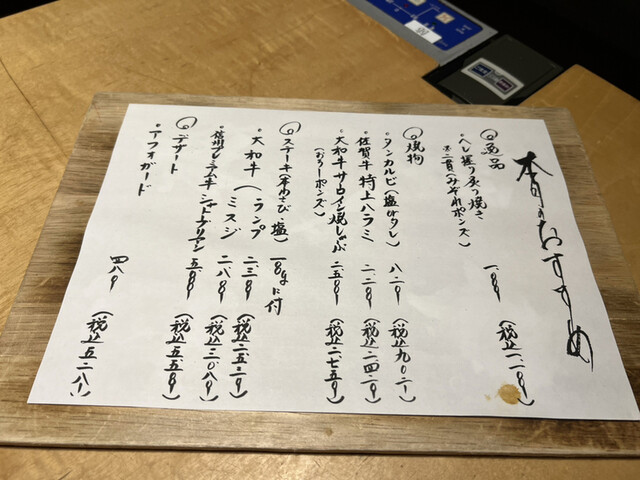 本日のおすすめ
◎逸品
・ヒレ握り炙り焼き 一、〇〇〇 (税込一、一〇〇)
※二貫(みぞれポンズ)
◎焼物
・タンカルビ(塩orタレ) 八二〇 (税込九〇二)
・佐賀牛特上ハラミ 二、二〇〇 (税込二、四二〇)
・大和牛サーロイン焼しゃぶ 二、五〇〇 (税込二、七五〇)
(おろしポンズ)
◎ステーキ(本わさび・塩) 一〇〇gに付
・大和牛(ランプ 二、三〇〇 (税込二、五三〇)
ミスジ 二、八〇〇 (税込三、〇八〇)
・信州プレミアム牛シャトーブリアン 五、〇〇〇 (税込五、五〇〇)
◎デザート
・アフォガード 四八〇 (税込五二八)